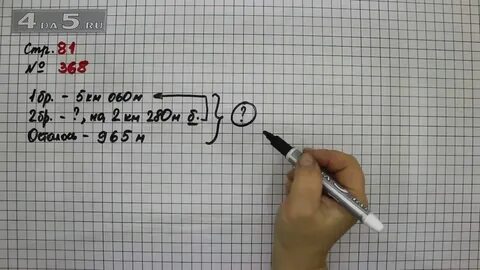 4DA5.RU
Стр. 81
№ 368
1 бр. - 5 км 060 м
2 бр. - ?, на 2 км 280 м б.
?
Осталось - 965 м